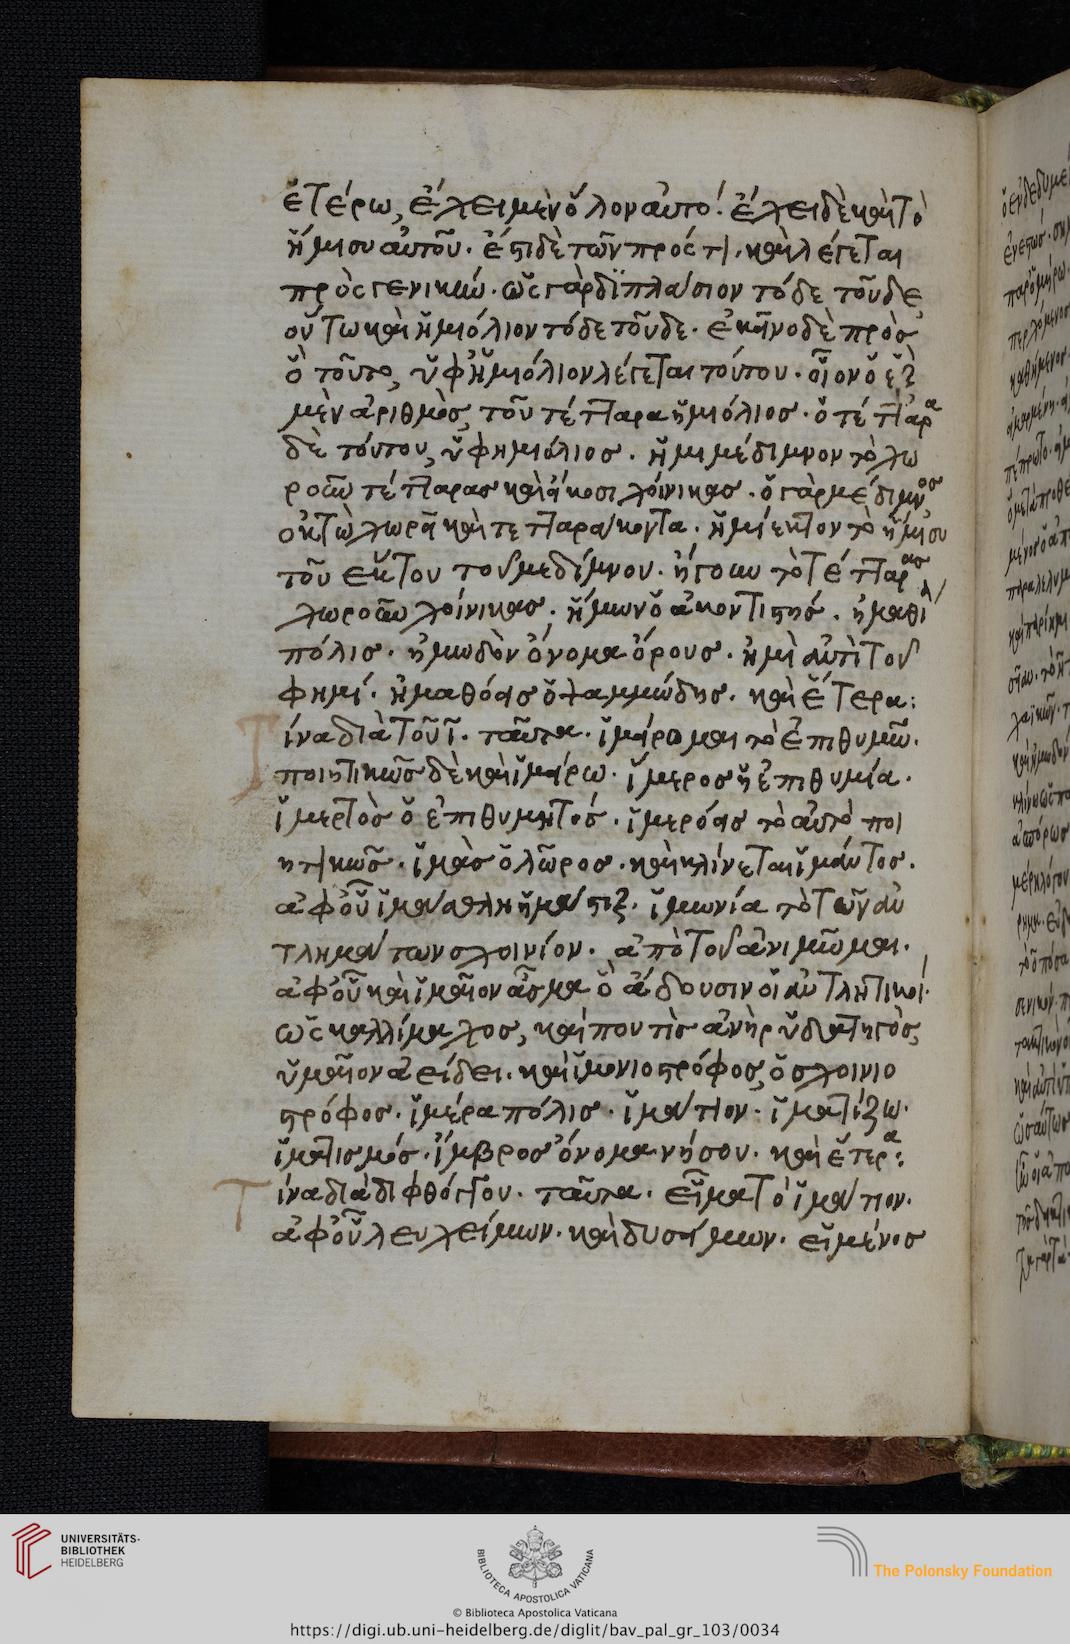 ἑτέρω, ἔχει μὲν ὅλον αὐτό. ἔχει δὲ καὶ τὸ
ἥμισυ αὐτοῦ. ἔστι δὲ τῶν πρός τι. καὶ λέγεται
πρὸς γενικήν. ὡς γὰρ διπλάσιον τόδε τοῦδε,
οὕτω καὶ ἡμιόλιον τόδε τοῦδε. ἐκεῖνο δὲ πρὸς
ὃ τοῦτο, ὑφημιόλιον λέγεται τούτου. οἷον ὁ ἓξ
μὲν ἀριθμὸς, τοῦ τέτταρα ἡμιόλιος. ὁ τέτταρα
δὲ τούτου, ὑφημιόλιος. ἡμιμέδιμνον τὸ χω
ροῦν τέτταρας καὶ εἴκοσι χοίνικας. ὁ γὰρ μέδιμνος
ὀκτὼ χωρεῖ καὶ τετταράκοντα. ἡμίεκτον τὸ ἥμισυ
τοῦ ἕκτου τοῦ μεδίμνου. ἤγουν τὸ τέτταρας
χωροῦν χοίνικας. ἥμων ὁ ἀκοντιστής. ἠμαθί
πόλις. ἠμωδὸν ὄνομα ὄρους. ἠμὶ ἀντὶ τοῦ
φημί. ἠμαθόεις ὁ ψαμμώδης. καὶ ἕτερα:
Τίνα διὰ τοῦ ἰ. ταῦτα. ἱμείρομαι τὸ ἐπιθυμῶ.
ποιητικῶς δὲ καὶ ἱμείρω. ἵμερος ἡ ἐπιθυμία.
ἱμερτὸς ὁ ἐπιθυμητός. ἱμερόεις τὸ αὐτὸ ποι
ητικῶς. ἱμὰς ὁ λῶρος. καὶ κλίνεται ἱμάντος.
ἀφ' οὗ ἱμάσθλη ἡ μάστιξ. ἱμωνία τὸ τῶν ἀν
τλημάτων σχοινίον. ἀπὸ τοῦ ἀνιμῶμαι.
ἀφ' οὗ καὶ ἱμαῖον ᾆσμα ὃ ᾄδουσιν οἱ ἀντλητικοί.
ὡς καλλίμαχος, καί που τὶς ἀνὴρ ὑδατηγὸς,
ὑμαῖον ἀείδει. καὶ ἱμονιοστρόφος, ὁ σχοινιο
στρόφος. ἱμέρα πόλις. ἱμάτιον. ἱματίζω.
ἱματισμός. ἴμβρος ὄνομα νήσου. καὶ ἕτερα:
Τίνα διὰ διφθόγγου. ταῦτα. εἷμα τὸ ἱμάτιον.
ἀφ' οὗ λευχείμων. καὶ δυσείμων. εἱμένος
UNIVERSITÄTS-
BIBLIOTHEK
HEIDELBERG
BIBLIOTECA APOSTOLICA VATICANA
The Polonsky Foundation
© Biblioteca Apostolica Vaticana
https://digi.ub.uni-heidelberg.de/diglit/bav_pal_gr_103/0034